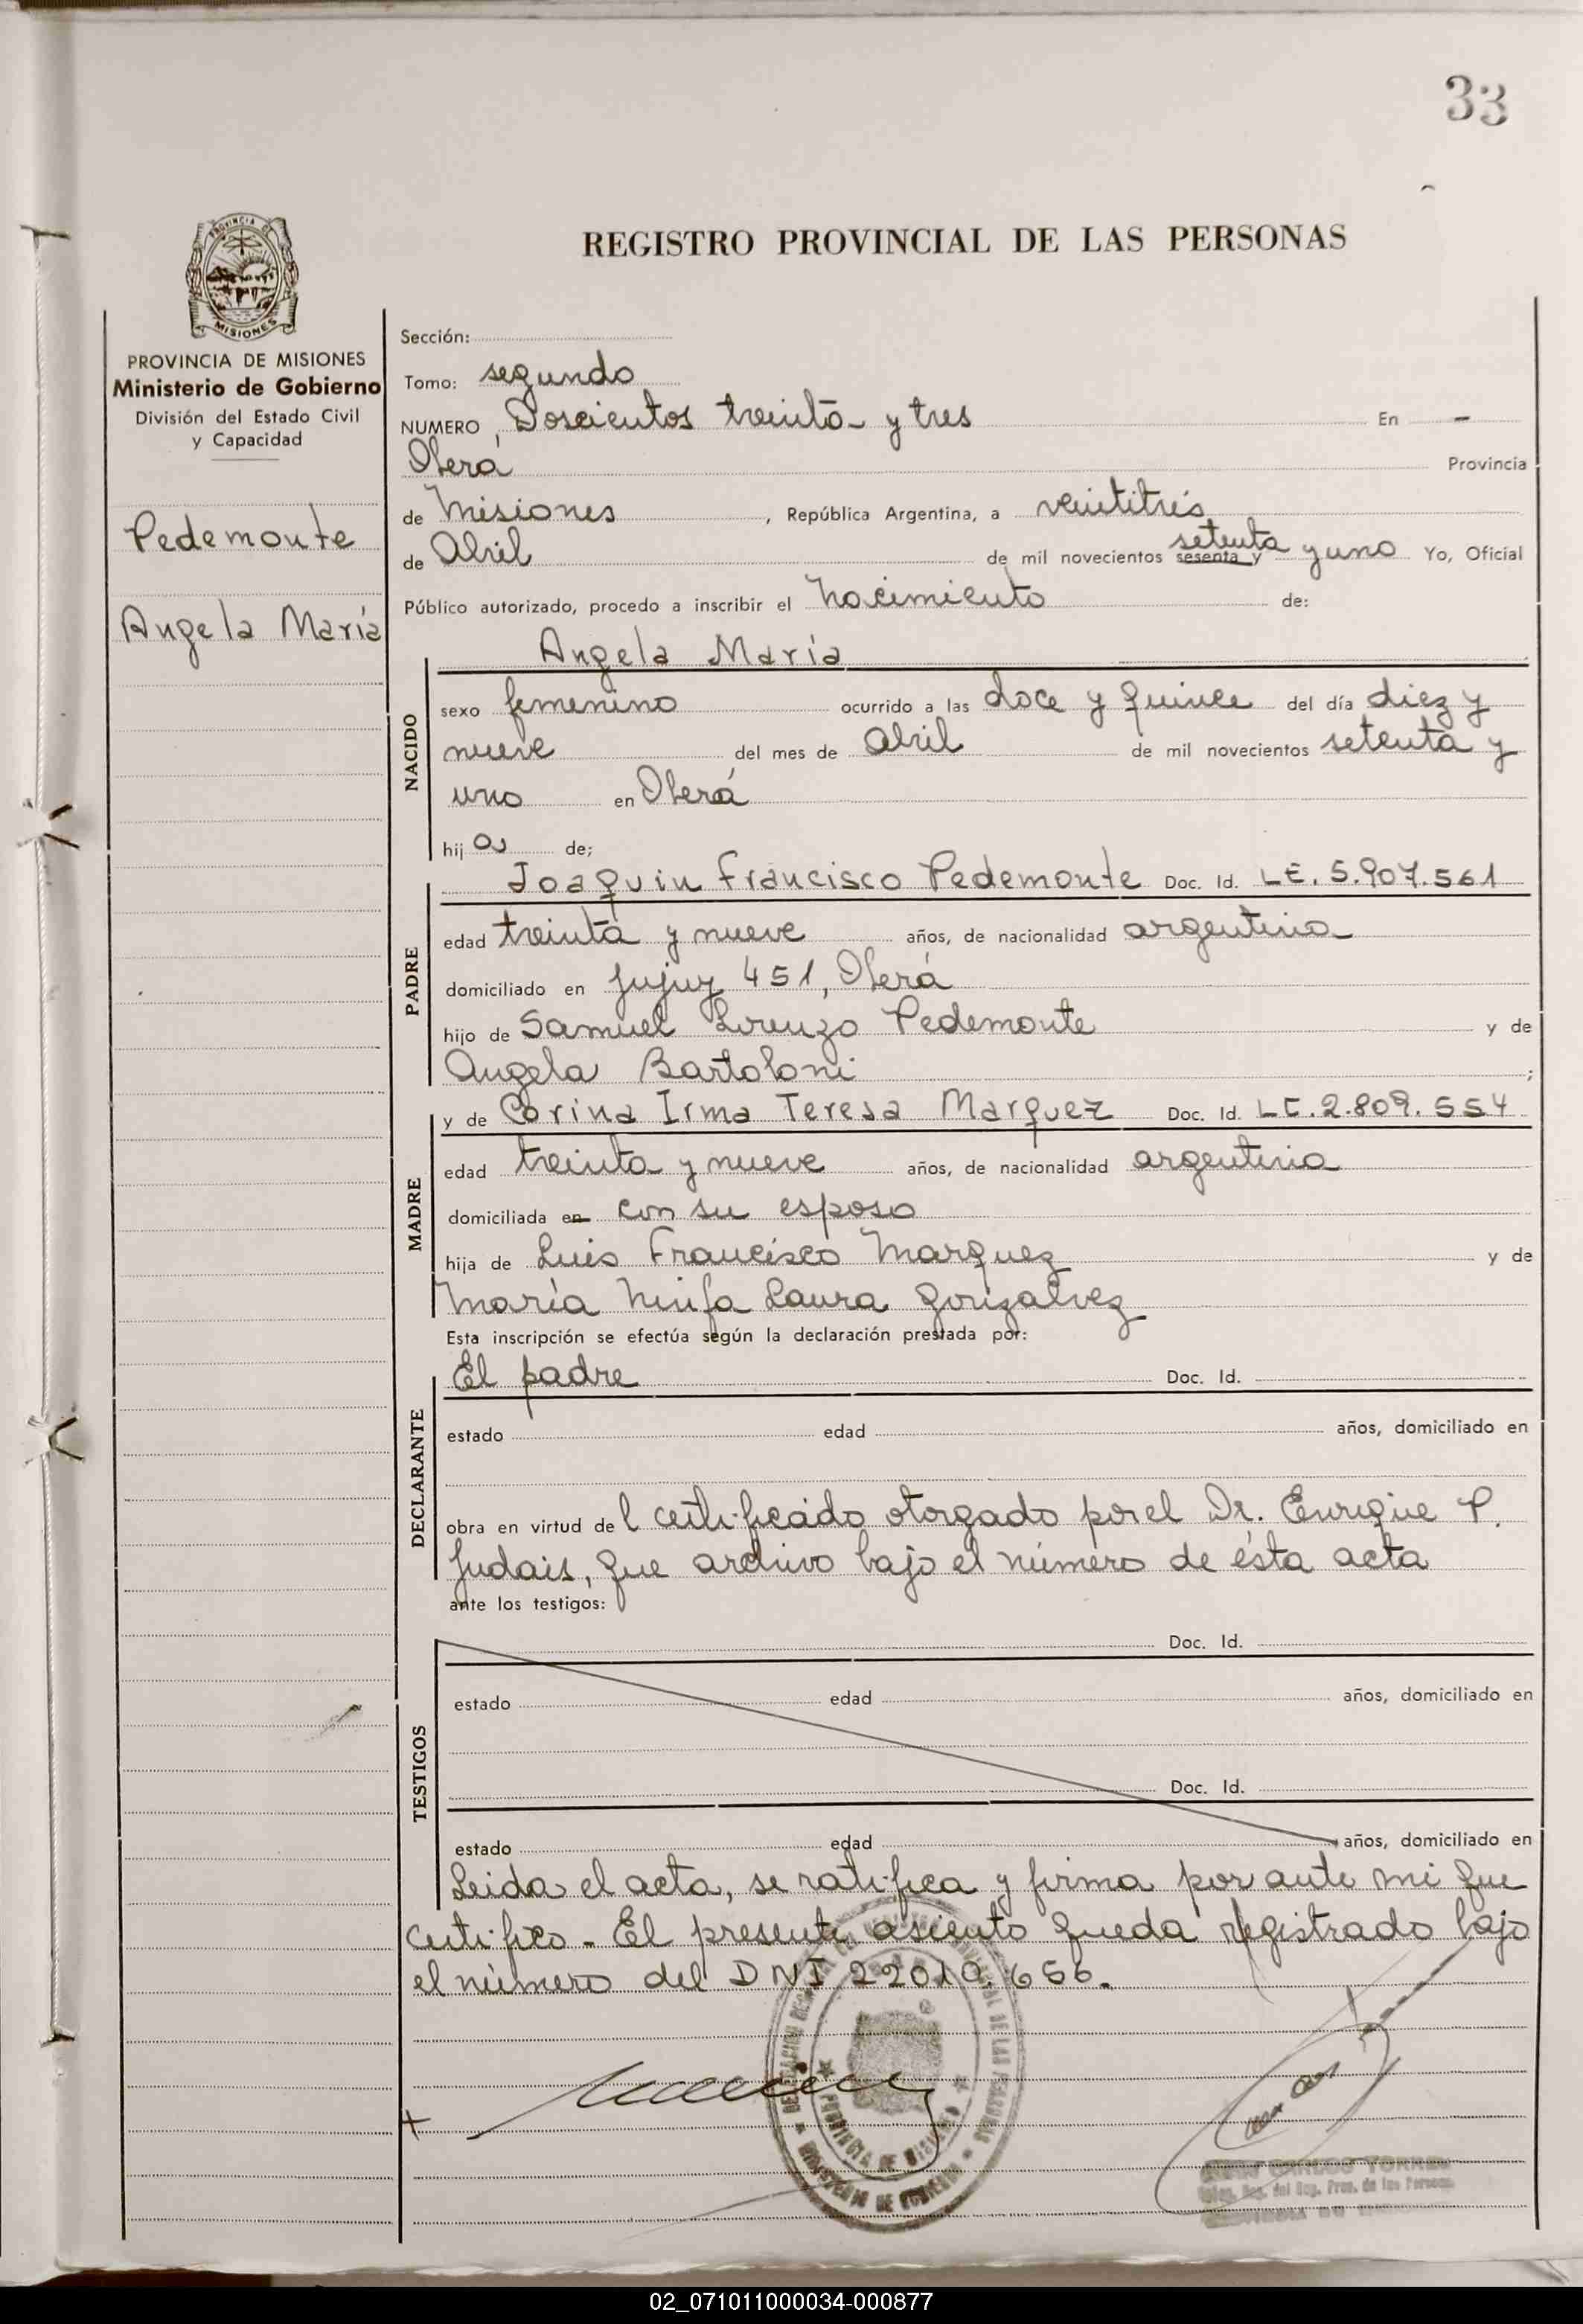 33
REGISTRO PROVINCIAL DE LAS PERSONAS
PROVINCIA DE MISIONES
Ministerio de Gobierno
División del Estado Civil
y Capacidad
Pedemonte
Angela María
Sección:
Tomo: segundo
NUMERO, Doscientos treinta y tres En -
Oberá Provincia
de Misiones, República Argentina, a veintitrés
setenta
de Abril de mil novecientos sesenta y y uno Yo, Oficial
Público autorizado, procedo a inscribir el nacimiento de:
NACIDO
Angela María
sexo femenino ocurrido a las doce y quince del día diez y
nueve del mes de abril de mil novecientos setenta y
uno en Oberá
hija de;
PADRE
Joaquin Francisco Pedemonte Doc. Id. LE. 5.907.561
edad treinta y nueve años, de nacionalidad argentina
domiciliado en Jujuy 451, Oberá
hijo de Samuel Lorenzo Pedemonte y de
Angela Bartoloni;
MADRE
y de Corina Irma Teresa Marquez Doc. Id. LC.2.809.554
edad treinta y nueve años, de nacionalidad argentina
domiciliada en con su esposo
hija de Luis Francisco Marquez y de
María Ninfa Laura Gonzalvez
Esta inscripción se efectúa según la declaración prestada por:
DECLARANTE
El padre Doc. Id.
estado edad años, domiciliado en
obra en virtud del certificado otorgado por el Dr. Enrique P.
Judais, que archivo bajo el número de ésta acta
ante los testigos:
TESTIGOS
Doc. Id.
estado edad años, domiciliado en
Doc. Id.
estado edad años, domiciliado en
Leida el acta, se ratifica y firma por ante mi que
certifico. El presente asiento queda registrado bajo
el número del DNI 22010.656.
PROVINCIA DE MISIONES
MINISTERIO DE GOBIERNO
02_071011000034-000877